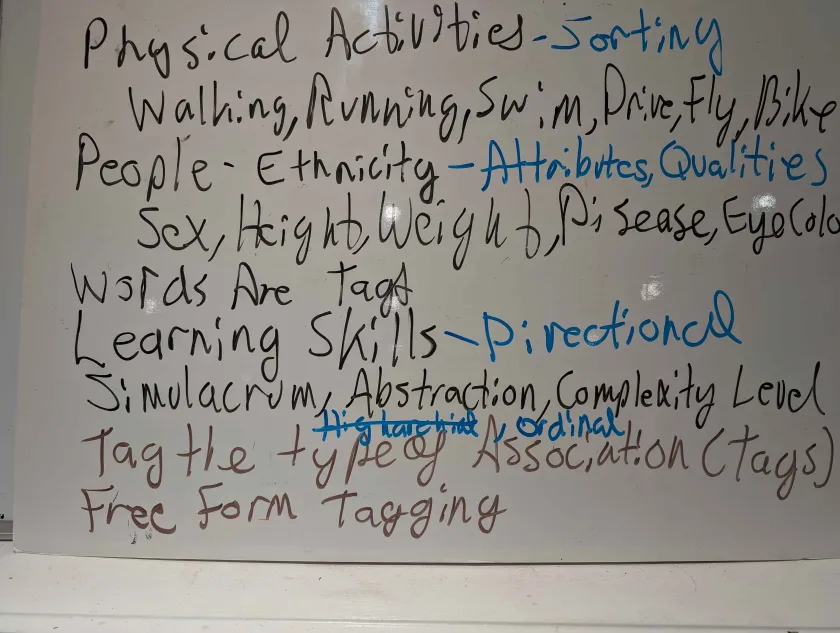 Physical Activities - Sorting
Walking, Running, Swim, Drive, Fly, Bike
People - Ethnicity - Attributes, Qualities
Sex, Height, Weight, Disease, Eye Colo
Words Are Tags
Learning Skills - Directional
Simulacrum, Abstraction, Complexity Level
, ordinal
Tag the type of Association (Tags)
Free Form Tagging